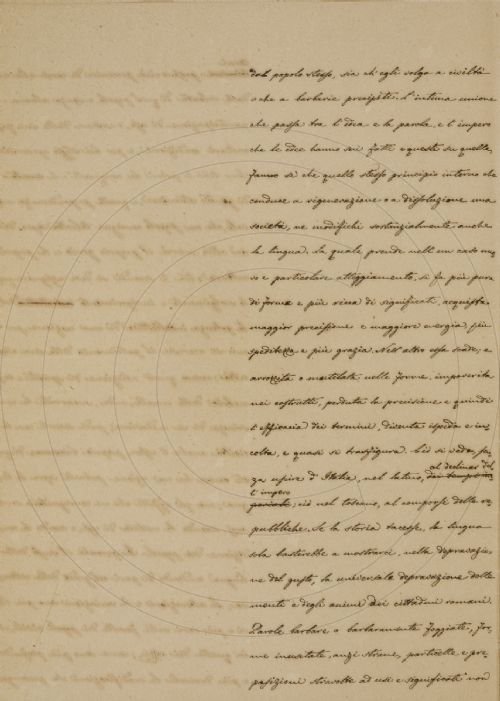 dal popolo stesso, sia ch'egli volga a civiltà
o che a barbarie precipiti. L'intima unione
che passa tra l'idea e la parola, e l'impero
che le idee hanno sui fatti e questi su quelle,
fanno sì che quello stesso principio interno che
conduce a rigenerazione o a dissoluzione una
società, ne modifichi sostanzialmente anche
la lingua. La quale prende nell'un caso nuo-
vo e particolare atteggiamento, si fa più pura
di forma e più ricca di significati, acquista
maggior precisione e maggiore energia, più
speditezza e più grazia. Nell'altro essa scade; e
arrozzita o mutilata nelle forme, impoverita
nei costrutti, perduta la precisione e quindi
l'efficacia dei termini, diventa ispida e in-
colta, e quasi si trasfigura. Ciò si vede, sen-
za uscire d'Italia, nel latino, al declinar del-
l'impero
; ciò nel toscano, al comporse delle re-
pubbliche. Se la storia tacesse, la lingua
sola basterebbe a mostrarci, nella depravazio-
ne del gusto, la universale depravazione delle
menti e degli animi dei cittadini romani.
Parole barbare o barbaramente foggiate, for-
me inusitate, anzi strane, particelle e pre-
posizioni stravolte ad usi e significati non